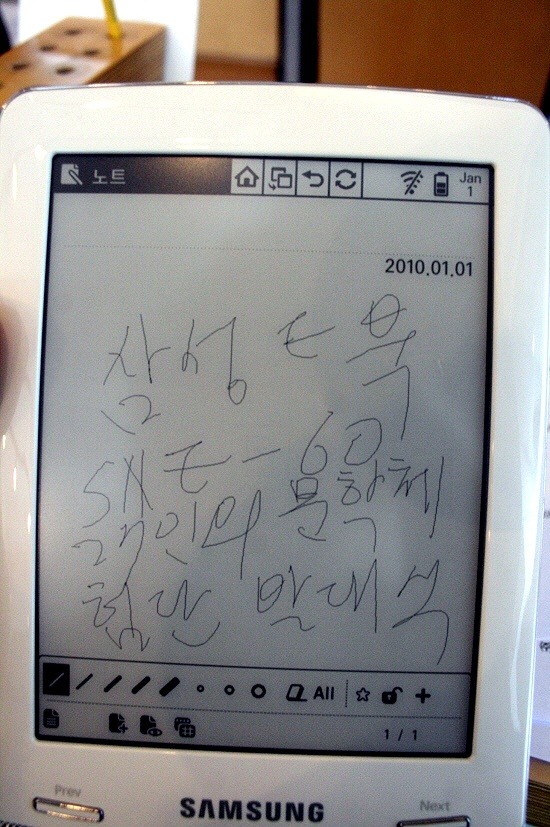 노트
Jan
1
2010.01.01
삼성 E북
SNE-60
개인의 문학체
험단 발대식
All
1 / 1
Prev
SAMSUNG
Next